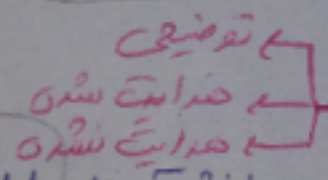 توضیحی
هدایت شده
هدایت نشده